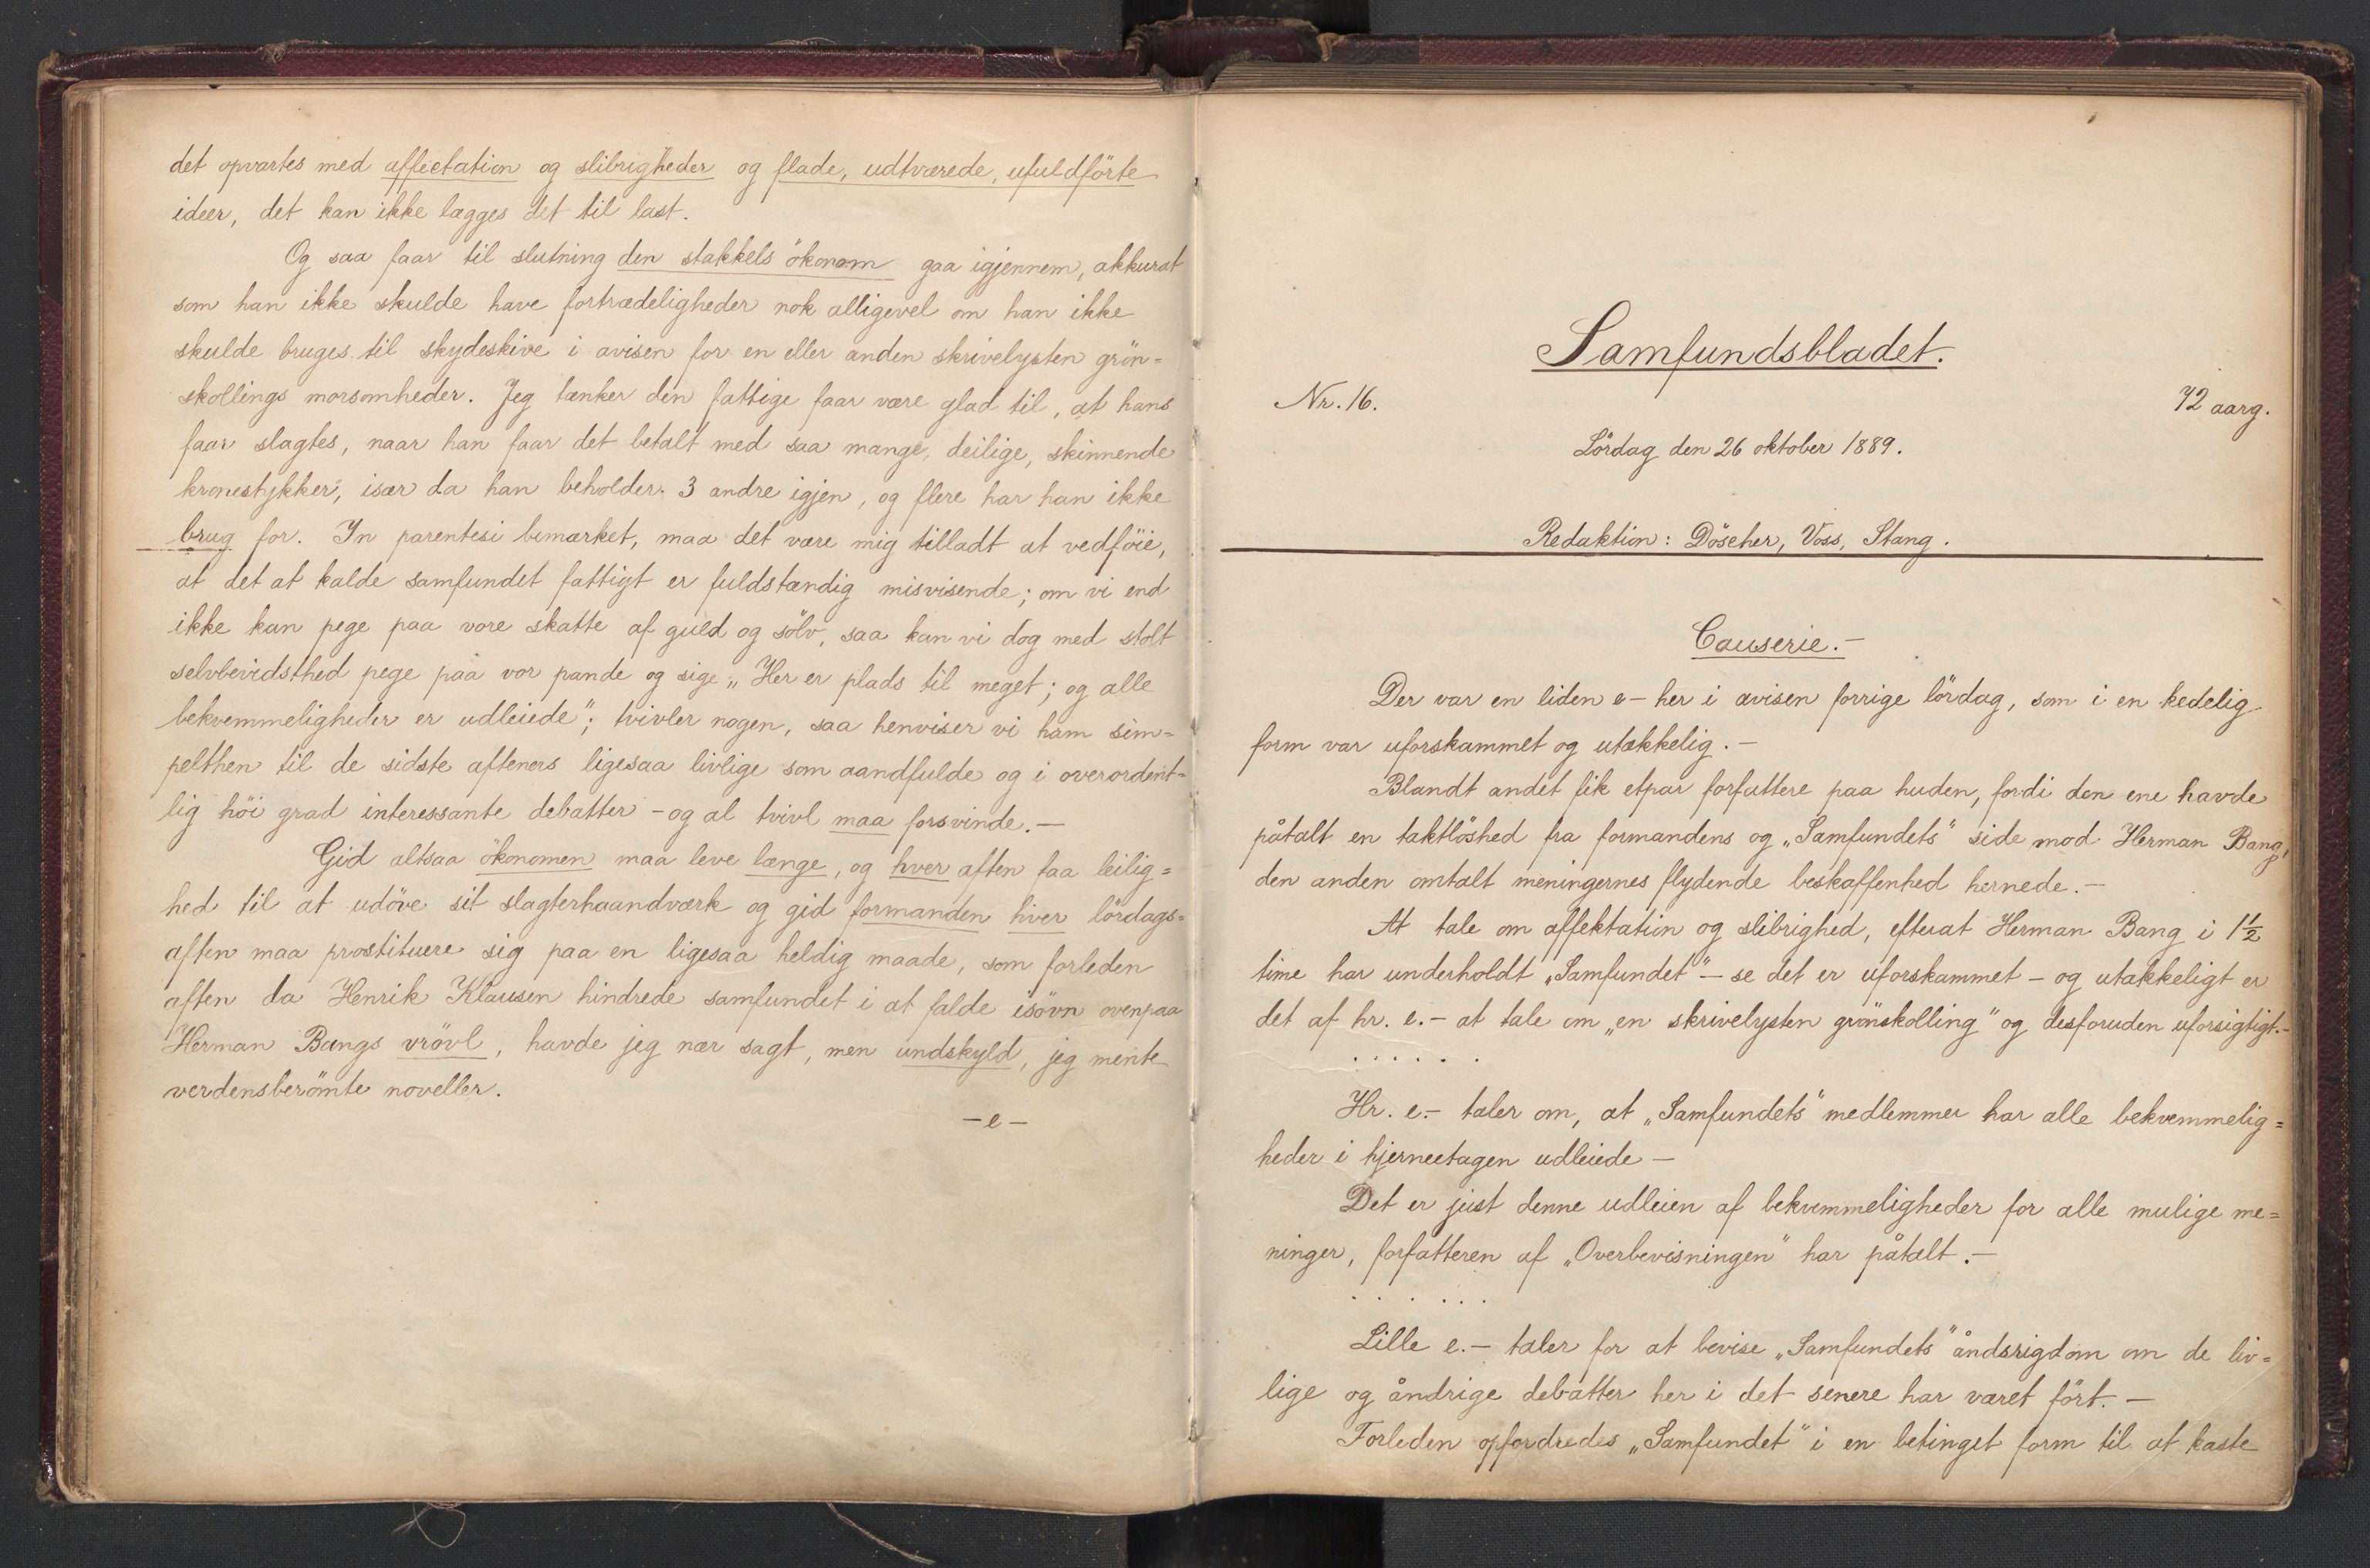 det opvartes med affectation og slibrigheder og flade, udtværede, ufuldförte
ideer, det kan ikke lægges det til last.
Og saa faar til slutning den stakkels ökonom gaa igjennem, akkurat
som han ikke skulde have fortrædeligheder nok alligevel om han ikke
skulde bruges til skydeskive i avisen for en eller anden skrivelysten grön=
skollings morsomheder. Jeg tænker den fattige faar være glad til, at hans
faar slagtes, naar han faar det betalt med saa mange, deilige, skinnende
kronestykker, især da han beholder 3 andre igjen, og flere har han ikke
brug for. In parentesi bemærket, maa det være mig tilladt at vedföie,
at det at kalde samfundet fattigt er fuldstændig misvisende; om vi end
ikke kan pege paa vore skatte af guld og sölv, saa kan vi dog med stolt
selvbevidsthed pege paa vor pande og sige „Her er plads til meget; og alle
bekvemmeligheder er udleiede"; tvivler nogen, saa henviser vi ham sim=
pelthen til de sidste afteners ligesaa livlige som aandfulde og i overordent=
lig höi grad interessante debatter – og al tvivl maa forsvinde. –
Gid altsaa ökonomen maa leve længe, og hver aften faa leilig=
hed til at udöve sit slagterhaandværk og gid formanden hver lördags=
aften maa prostituere sig paa en ligesaa heldig maade, som forleden
aften da Henrik Klausen hindrede samfundet i at falde isövn ovenpaa
Herman Bangs vrövl, havde jeg nær sagt, men undskyld, jeg mente
verdensberömte noveller.
– e –
Samfundsbladet.
Nr. 16.
72 aarg.
Lördag den 26 oktober 1889.
Redaktion: Döscher, Voss, Stang.
Causerie. –
Der var en liden e – her i avisen forrige lördag, som i en kedelig
form var uforskammet og utækkelig. –
Blandt andet fik etpar forfattere paa huden, fordi den ene havde
påtalt en taktlöshed fra formandens og „Samfundets" side mod Herman Bang,
den anden omtalt meningernes flydende beskaffenhed hernede. –
At tale om affektation og slibrighed, efterat Herman Bang i 1½
time har underholdt „Samfundet" – se det er uforskammet – og utakkeligt er
det af hr. e. – at tale om „en skrivelysten grönskolling" og desforuden uforsigtigt. –
. . . . . .
Hr. e. – taler om, at „Samfundets" medlemmer har alle bekvemmelig=
heder i hjerneetagen udleiede –
Det er just denne udleien af bekvemmeligheder for alle mulige me=
ninger, forfatteren af „Overbevisningen" har påtalt. –
. . . . . .
Lille e. – taler for at bevise „Samfundets" åndsrigdom om de liv=
lige og åndrige debatter her i det senere har været fört. –
Forleden opfordredes „Samfundet" i en betinget form til at kaste